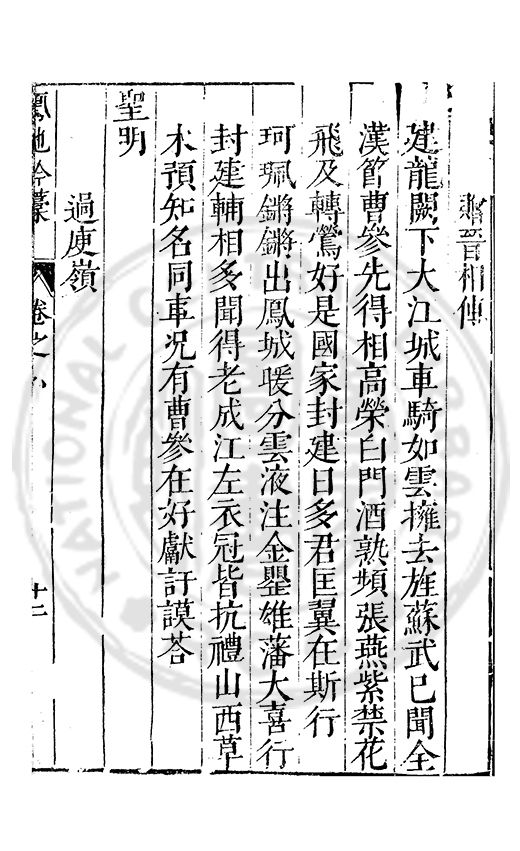 晉相傅
建龍闕下大江城車騎如雲擁去旌蘇武已聞全
漢節曹參先得相高榮白門酒熟頻張燕紫禁花
飛及轉鶯好是國家封建日多君匡翼在斯行
珂珮鏘鏘出鳳城暖分雲液注金罍雄藩大喜行
封建輔相多聞得老成江左衣冠皆抗禮山西草
木預知名同車況有曹參在好獻訏謨荅
聖明
過庾嶺
鳳池吟藁
卷之八
十二
NATIONAL